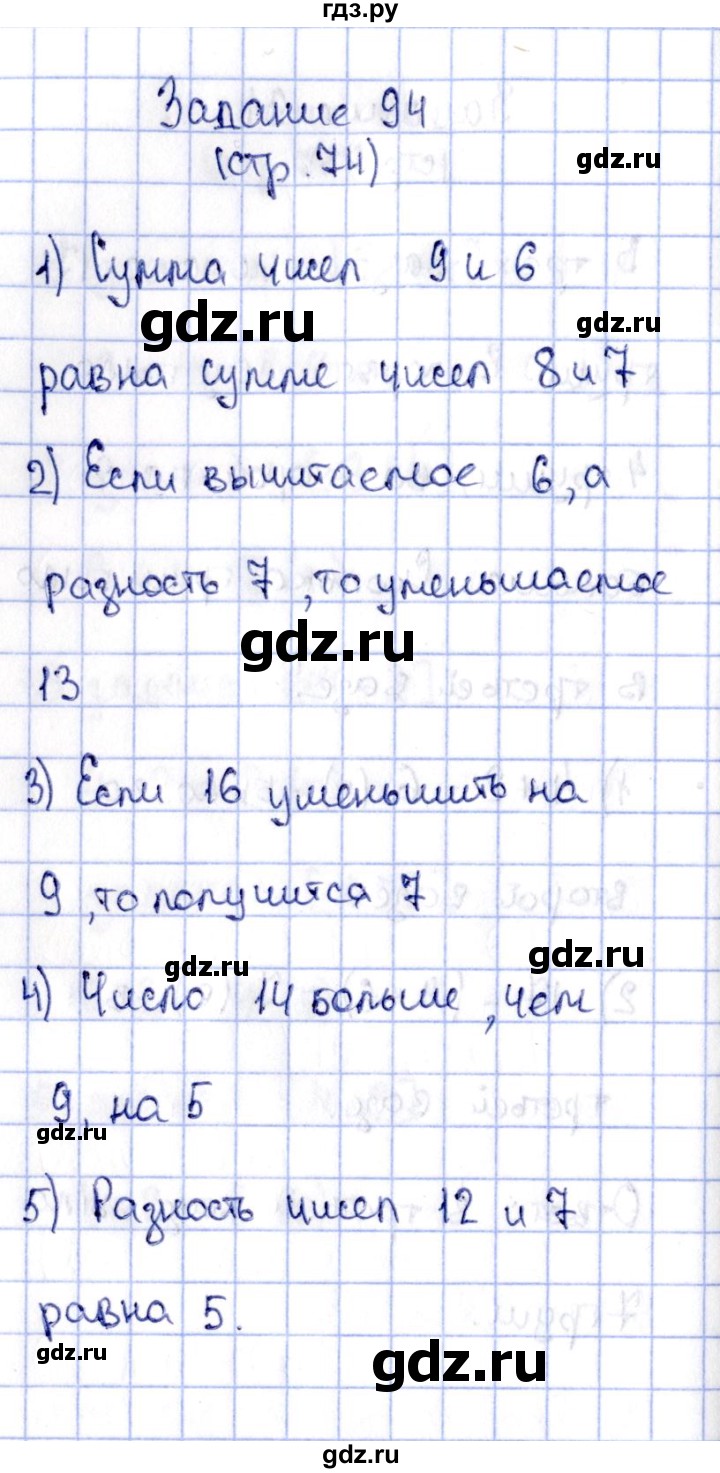 гдз.ру
Задание 94
(стр. 74)
gdz.ru
1) Сумма чисел 9 и 6
gdz.ru
gdz.ru
равна сумме чисел 8 и 7
2) Если вычитаемое 6, а
разность 7, то уменьшаемое
gdz.ru
13
3) Если 16 уменьшить на
9, то получится 7
gdz.ru
gdz.ru
4) Число 14 больше, чем
9, на 5
gdz.ru
5) Разность чисел 12 и 7
равна 5.
gdz.ru
gdz.ru
gdz.ru